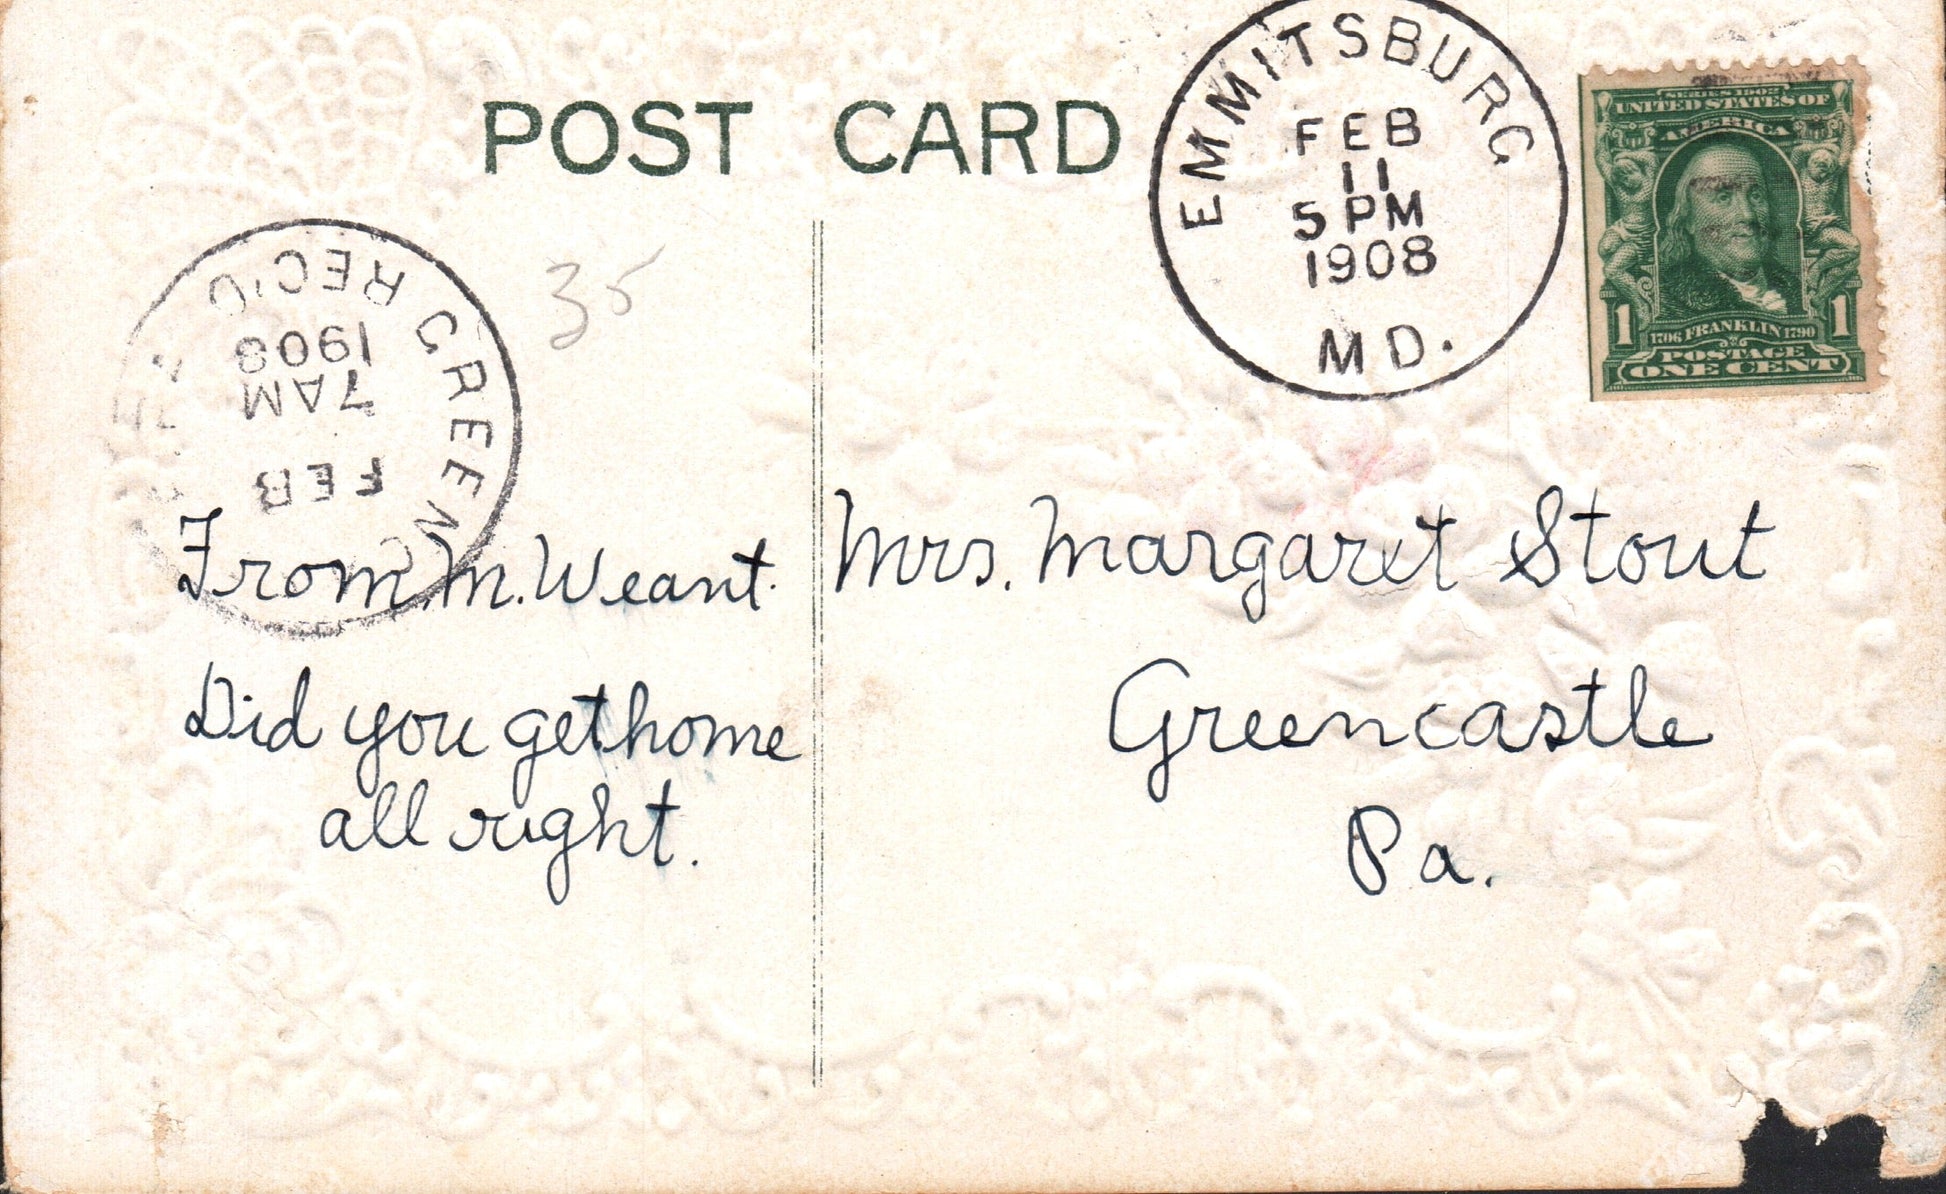 POST CARD
EMMITSBURG
FEB
11
5 PM
1908
MD.
SERIES 1902
UNITED STATES OF
AMERICA
1 1706 FRANKLIN 1790 1
POSTAGE
ONE CENT
GREENC
REC'D
1908
7 AM
FEB
35
From M. Weant.
Did you get home
all right.
Mrs. Margaret Stout
Greencastle
Pa.